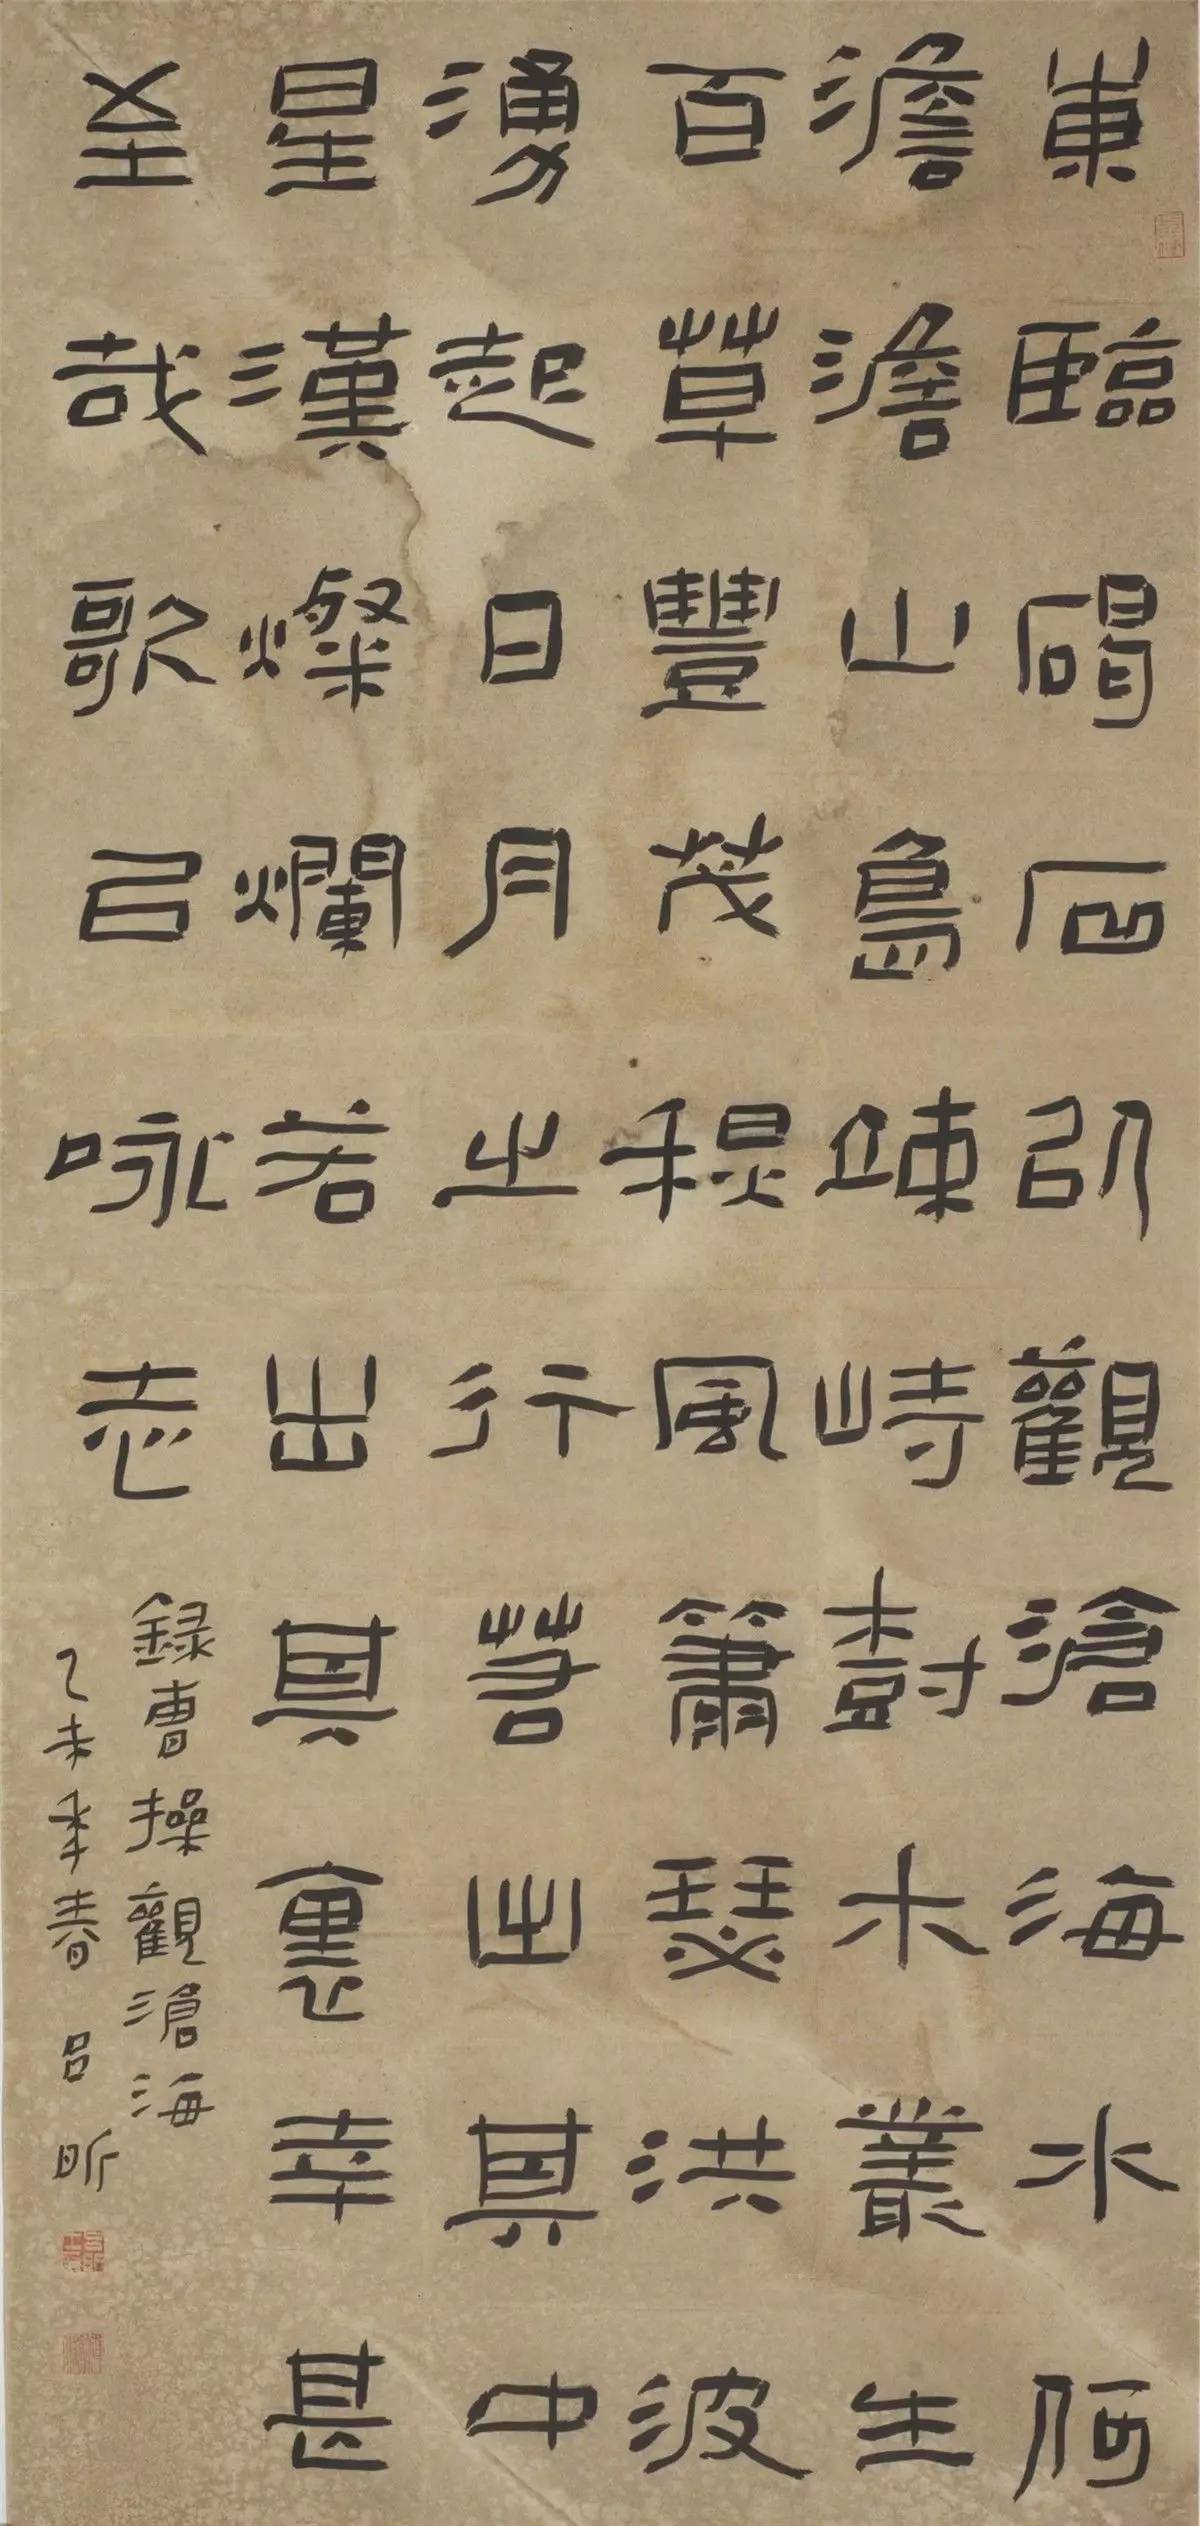 東臨碣石以觀滄海水何
澹澹山島竦峙樹木叢生
百草豐茂秋風蕭瑟洪波
湧起日月之行若出其中
星漢燦爛若出其裏幸甚
至哉歌以詠志
錄曹操觀滄海
乙未年春 呂昕